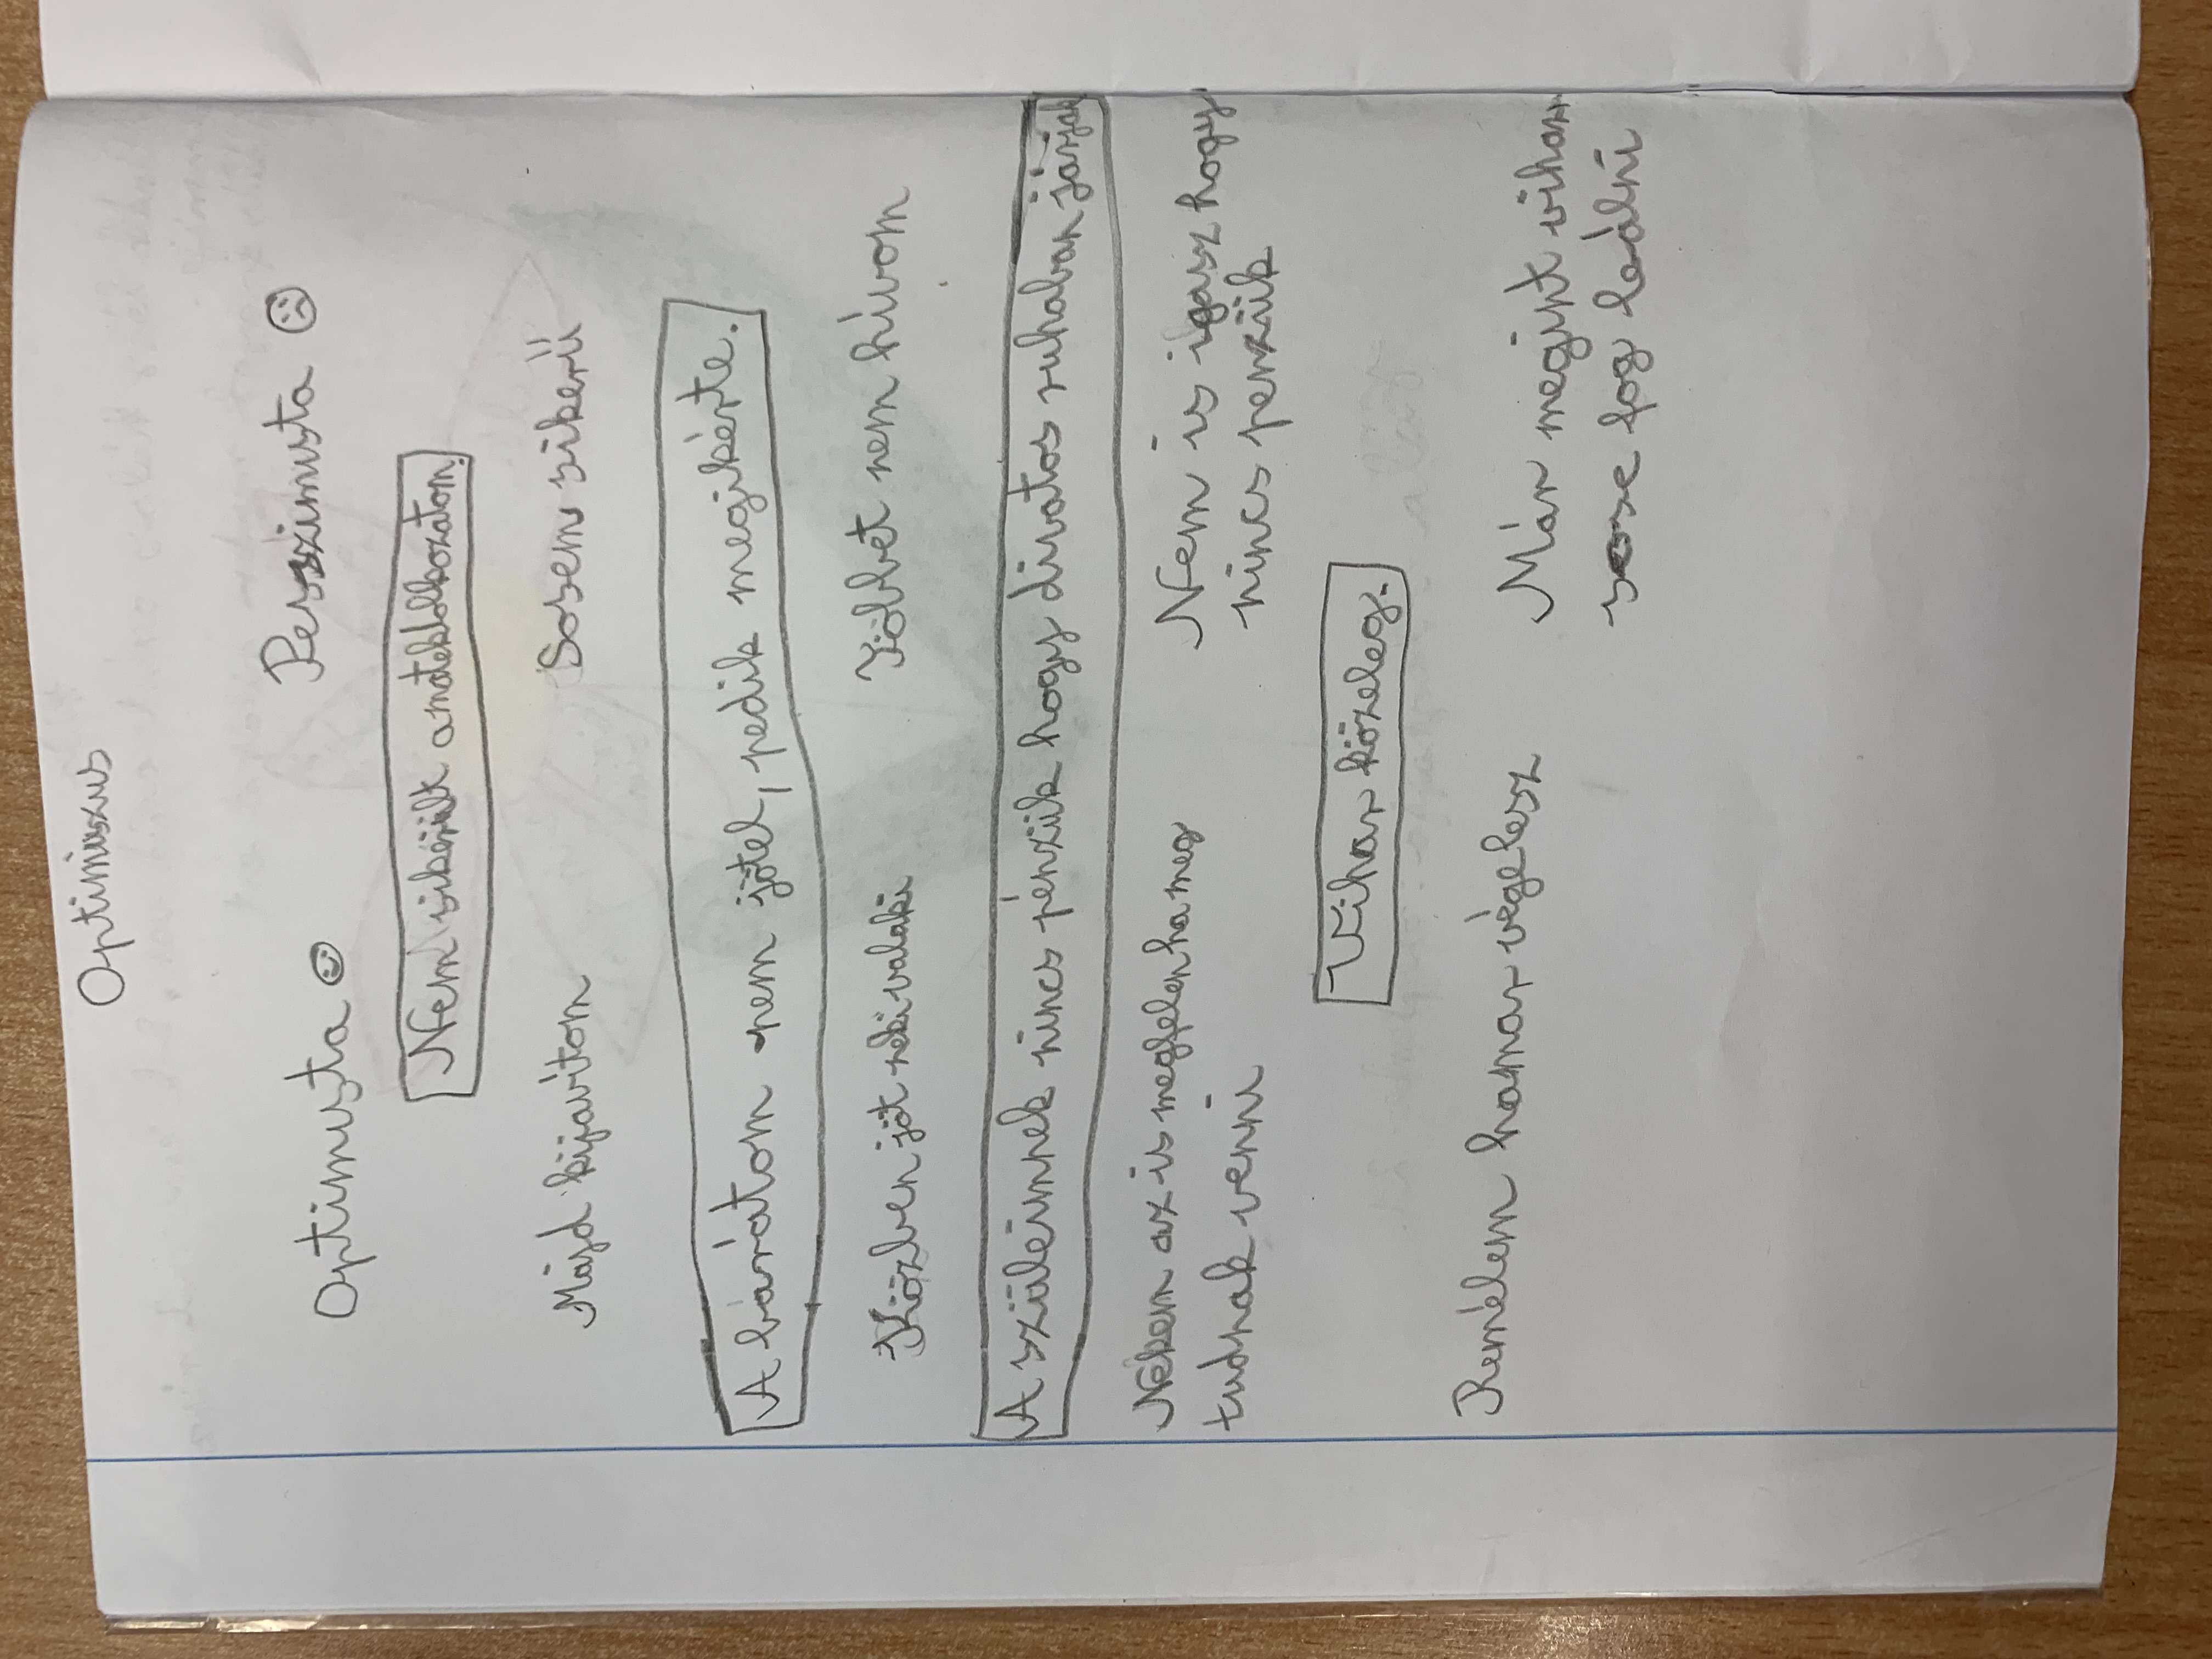 Optimiszus
Optimista ☺ Pesszimista ☹
Nem sikerült a matekdolkozatom.
Majd kijavitom Sosem sikerü
A barátom nem jötel, pedik megikérte.
Közben jöt neki valaki Többet nem hívom
A szüleimnek nincs pénzük hogy divatos ruhában járjak
Nekem az is megfelen ha meg Nem is igasz hogy
tudnak venni nincs penzük
Vihar közeleg.
Remélem hamar végelesz Már megint vihar
sose fog leálni